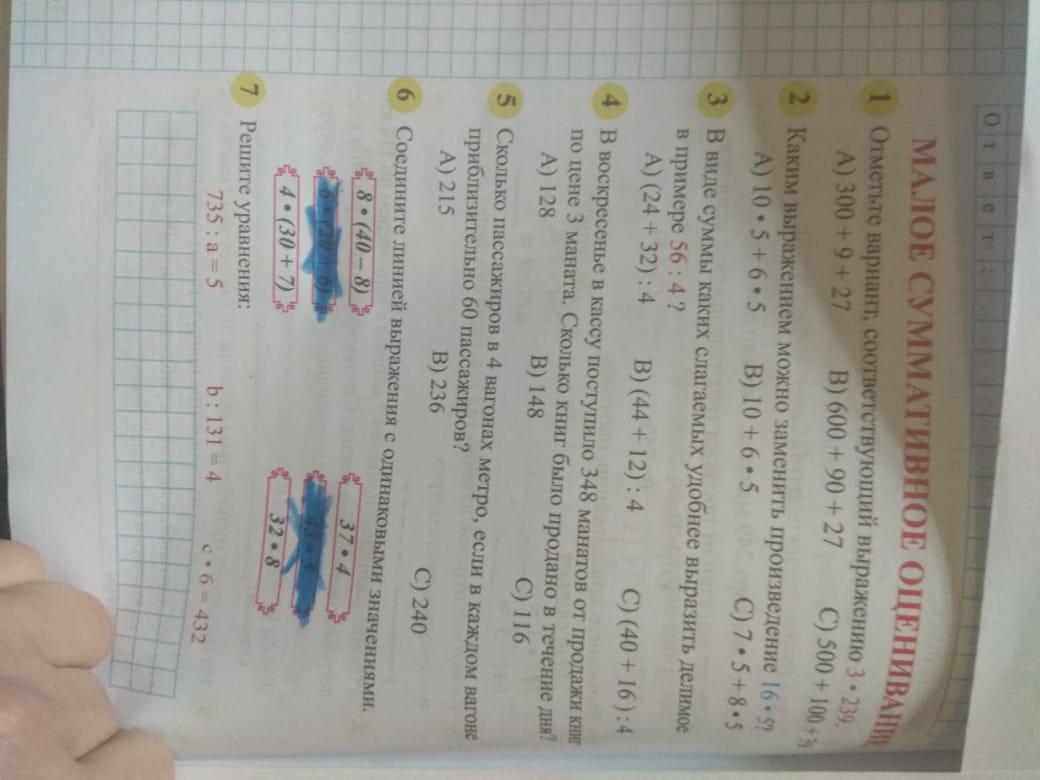 Ответ:
МАЛОЕ СУММАТИВНОЕ ОЦЕНИВАНИЕ
1 Отметьте вариант, соответствующий выражению 3 • 239.
A) 300 + 9 + 27 B) 600 + 90 + 27 C) 500 + 100 +
2 Каким выражением можно заменить произведение 16 • 5?
A) 10 • 5 + 6 • 5 B) 10 + 6 • 5 C) 7 • 5 + 8 • 5
3 В виде суммы каких слагаемых удобнее выразить делимое
в примере 56 : 4 ?
A) (24 + 32) : 4 B) (44 + 12) : 4 C) (40 + 16) : 4
4 В воскресенье в кассу поступило 348 манатов от продажи книг
по цене 3 маната. Сколько книг было продано в течение дня?
A) 128 B) 148 C) 116
5 Сколько пассажиров в 4 вагонах метро, если в каждом вагоне
приблизительно 60 пассажиров?
A) 215 B) 236 C) 240
6 Соедините линией выражения с одинаковыми значениями.
8 • (40 – 8) 37 • 4
4 • (30 + 7) 32 • 8
7 Решите уравнения:
735 : a = 5 b : 131 = 4 c • 6 = 432